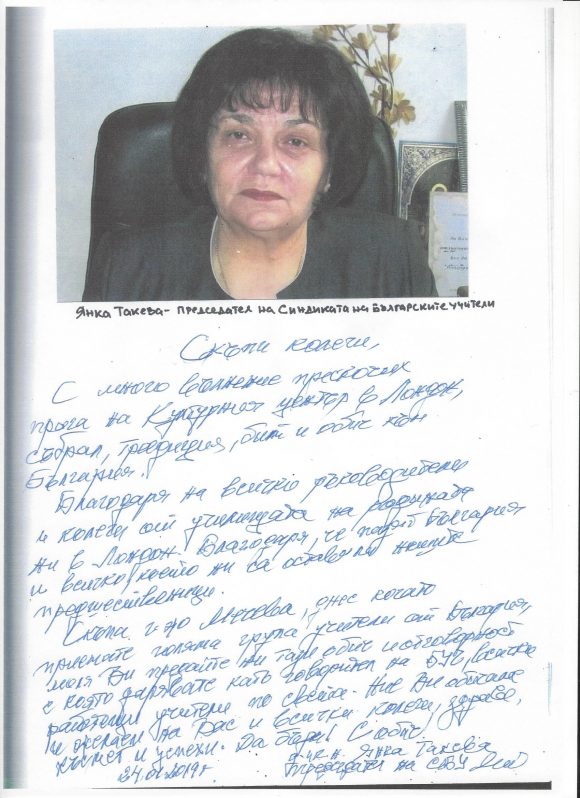 Янка Такева - председател на Синдиката на българските учители
Скъпи колеги,
С много вълнение прескочих
прага на Културния център в Лондон,
събрал, традиция, бит и обич към
България.
Благодаря на всички ръководители
и колеги от училищата на родината
ни в Лондон. Благодаря, че пазят България
и всичко, което ни са оставили нашите
предшественици.
Скъпа г-жо Мичева, днес когато
приемате голяма група учители от България,
моля Ви предайте им тази обич и отговорност
с която дарявате като говорител на БУЧ, всички
работещи учители по света. Ние Ви обичаме
и желаем на Вас и всички колеги, здраве,
късмет и успехи. Да бъде! С обич,
24.01.2019г. Янка Такева
Председател на СБУ